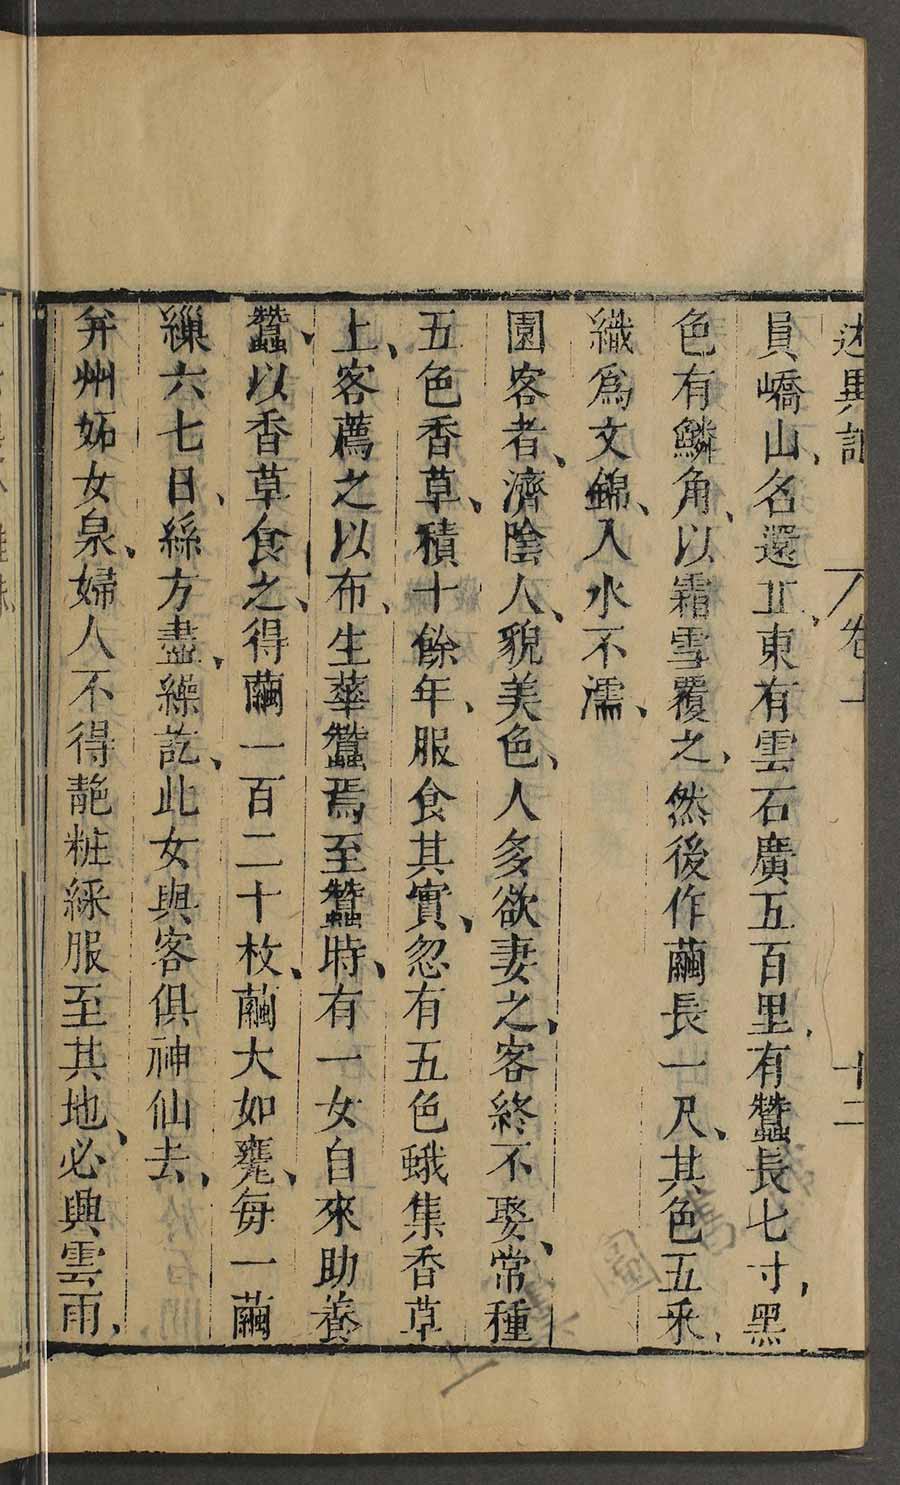 述異記 卷上 十二
員嶠山、名還丘、東有雲石廣五百里、有蠶長七寸、黑
色有鱗角、以霜雪覆之、然後作繭長一尺、其色五采、
織爲文錦、入水不濡、
園客者、濟陰人、貌美色、人多欲妻之、客終不娶、常種
五色香草、積十餘年、服食其實、忽有五色蛾集香草
上、客薦之以布、生華蠶焉、至蠶時、有一女自來助養
蠶、以香草食之、得繭一百二十枚、繭大如甕、每一繭
繅六七日、絲方盡、繰訖、此女與客俱神仙去、
并州妬女泉、婦人不得靘粧綵服至其地、必興雲雨、